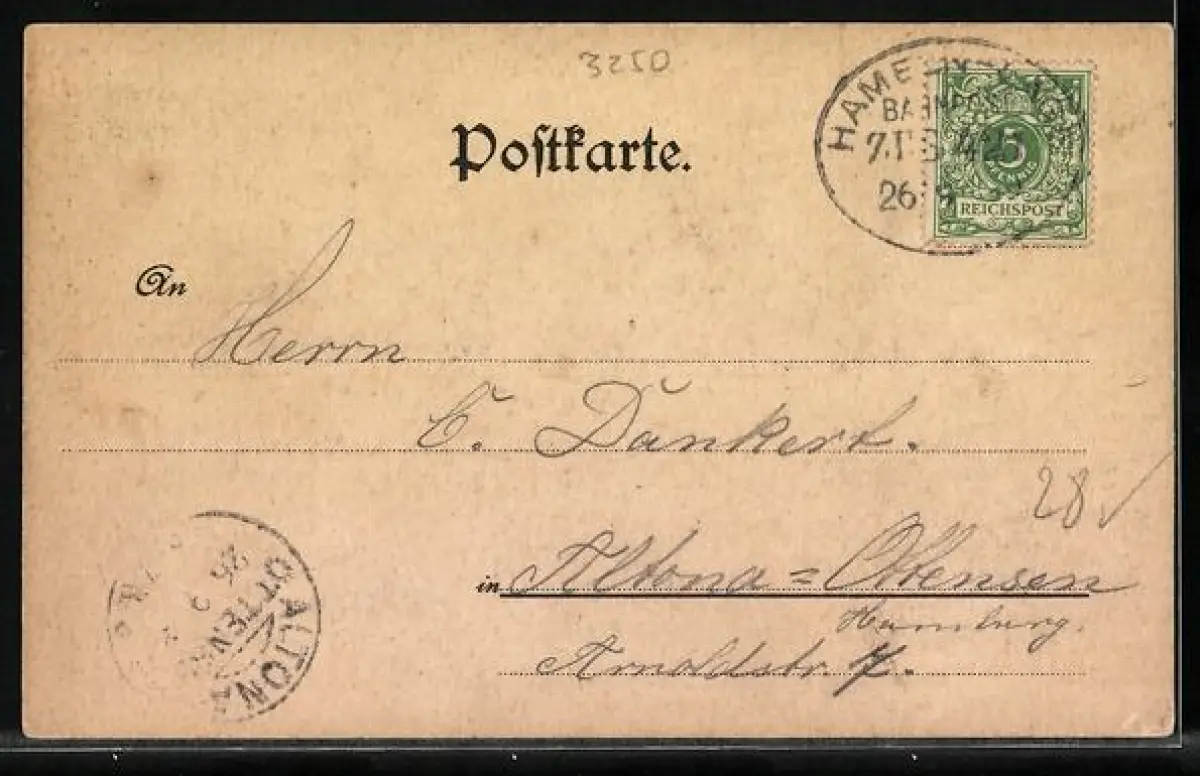 3250
Postkarte.
HAMELN
BAHNPOST
ZUG
26
5
REICHSPOST
An
Herrn
C. Dankert.
28
in Altona=Ottensen
Hamburg.
Arnoldstr. 7.
ALTONA
OTTENSEN
26